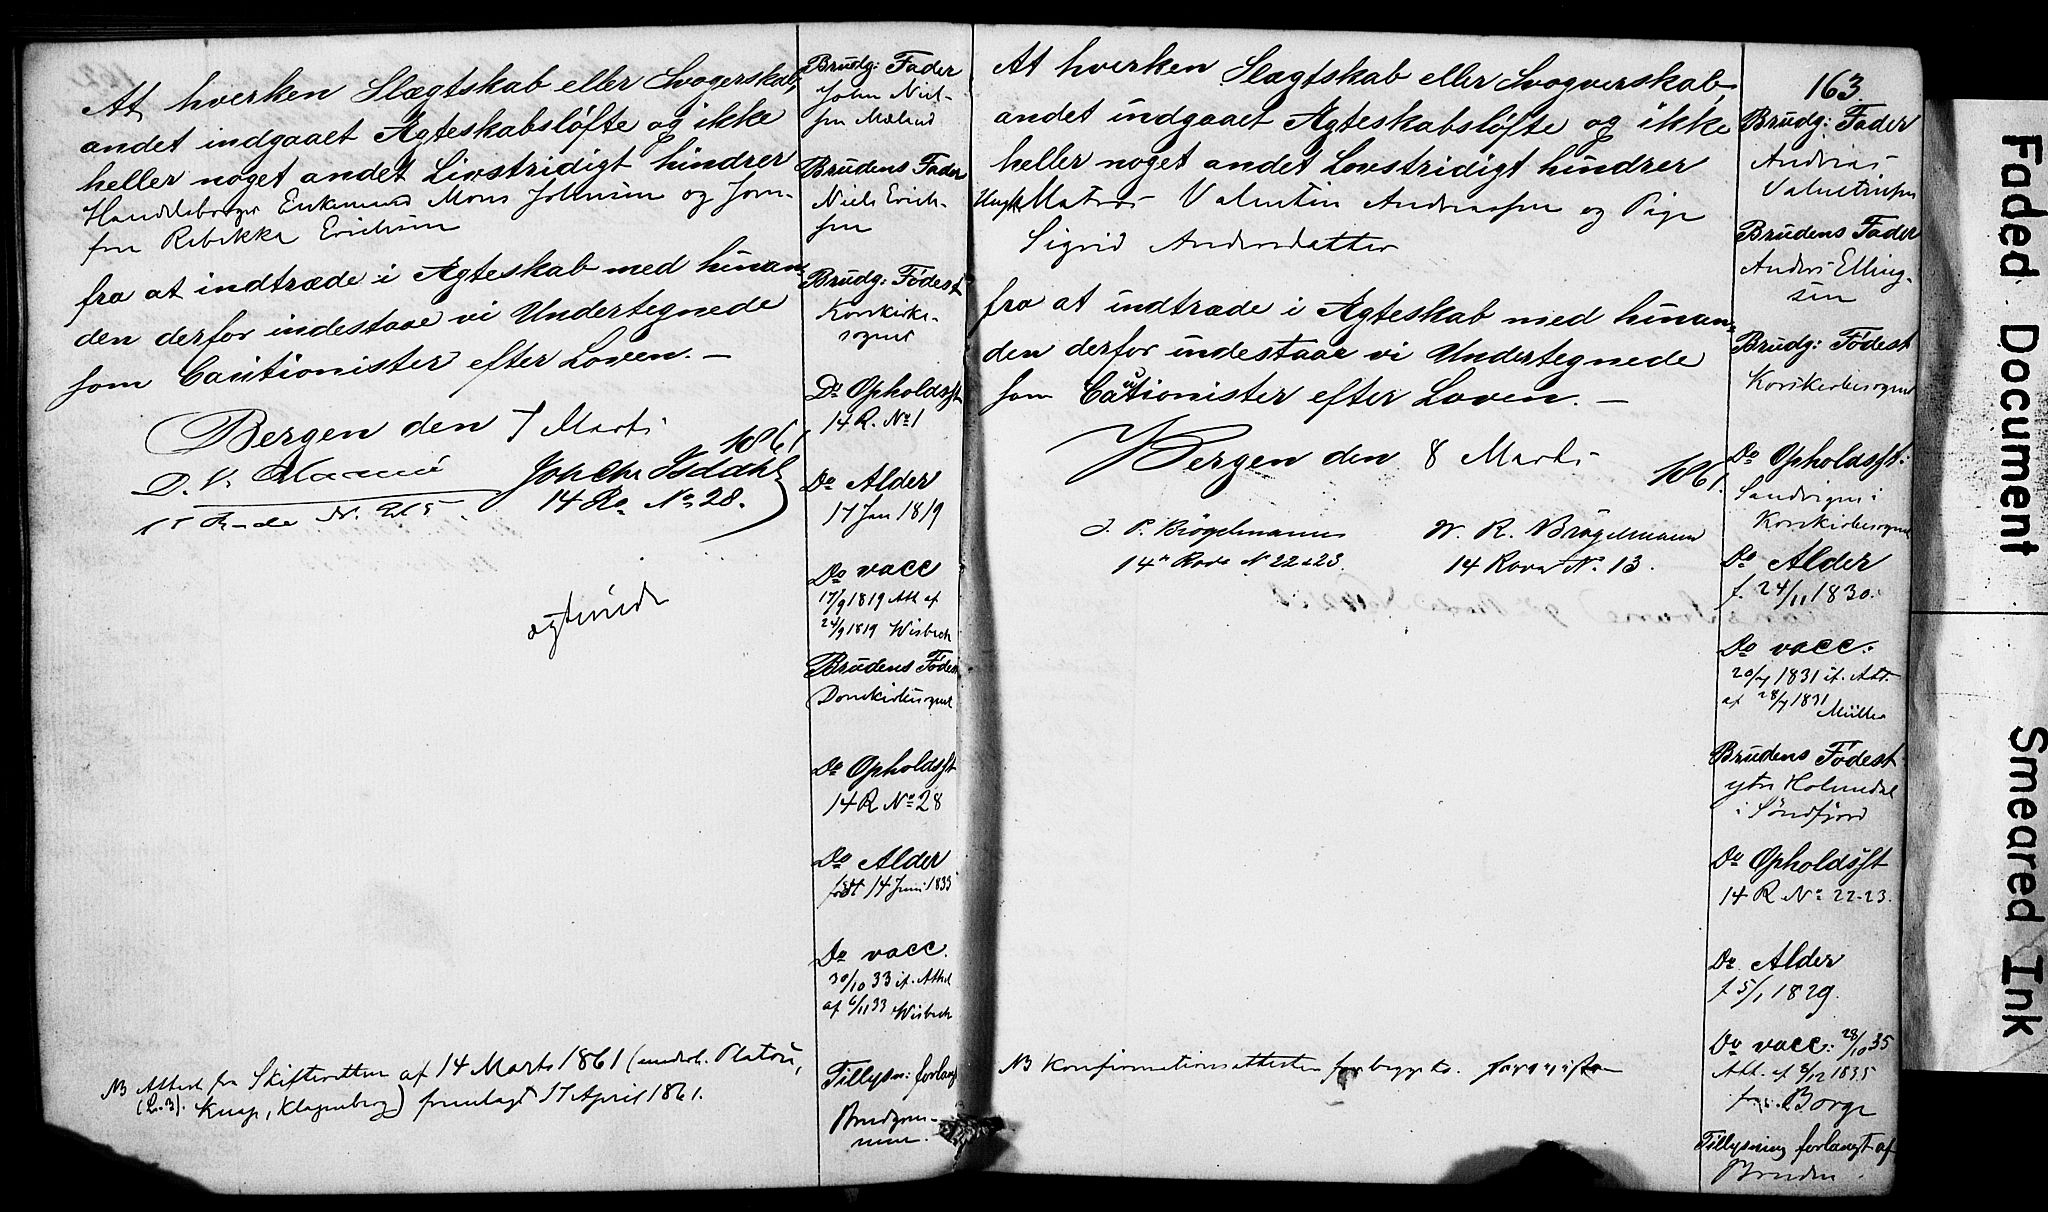 At hverken Slægtskab eller Svogerskab,
andet indgaaet Ægteskabsløfte og ikke
heller noget andet Lovstridigt hindrer
Handelsborger Enkemand Mons Johnsen og Jom-
fru Rebekka Erichsen
fra at indtræde i Ægteskab med hinan-
den derfor indestaae vi Undertegnede
som Cautionister efter Loven. —
Bergen den 7 Marts 1861
14 Ro No 28.
ægteviede
NB Attest fra Skifteretten af 14 Marts 1861 (underts. Platou,
(L. 3). Knap, Klagenberg) fremlagt 17 April 1861.
Brudg: Fader
John Niel-
sen Mæland
Brudens Fader
Niels Erich-
sen
Brudg: Fødest
Korskirke-
sognet
Do Opholdsst
14 R. No 1
Do Alder
17 Jan 1819
Do vacc
17/9 1819 Att af
24/9 1819 Wisbech
Brudens Fødest
Domkirkesognet
Do Opholdsst
14 R No 28
Do Alder
født 14 Juni 1833
Do vacc.
30/10 33 if. Attest
af 6/11 33 Wisbech
Tillysn: forlangt
Brudgom-
men.
163
At hverken Slægtskab eller Svogerskab,
andet indgaaet Ægteskabsløfte og ikke
heller noget andet Lovstridigt hindrer
Ungk Matros Valentin Andreassen og Pige
Sigrid Andersdatter
fra at indtræde i Ægteskab med hinan-
den derfor indestaae vi Undertegnede
som Cautionister efter Loven. —
Bergen den 8 Marts 1861.
J. P. Brögelmann W. R. Brögelmann
14de Rode N 22-23. 14 Rode N. 13.
NB Konfirmationsattesten
Brudg: Fader
Andreas
Valentinsen
Brudens Fader
Anders Elling-
sen
Brudg: Fødest
Korskirkesognet
Do Opholdsst:
Sandvigen i
Korskirkesognet
Do Alder
f. 24/11 1830.
Do vacc:
20/7 1831 if. Att.
af 28/7 1831 Müller
Brudens Fødest
ytre Holmedal
i Søndfjord
Do Opholdsst
14 R No 22-23.
Do Alder
f 5/1 1829.
Do vacc: 28/10 35
Att. af 8/12 1835
fra Borge
Tillysning forlangt af
Bruden.
Faded Document
Smeared Ink